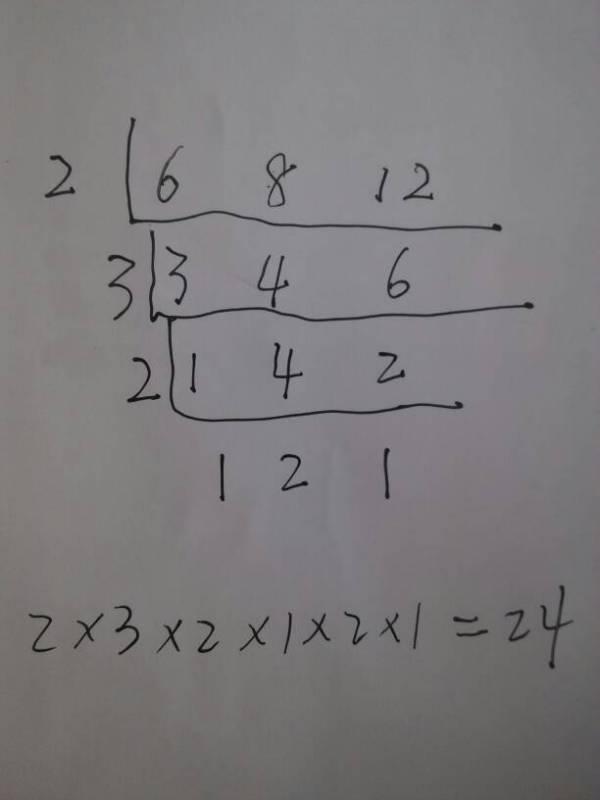 2 6 8 12
3 3 4 6
2 1 4 2
1 2 1
2×3×2×1×2×1=24